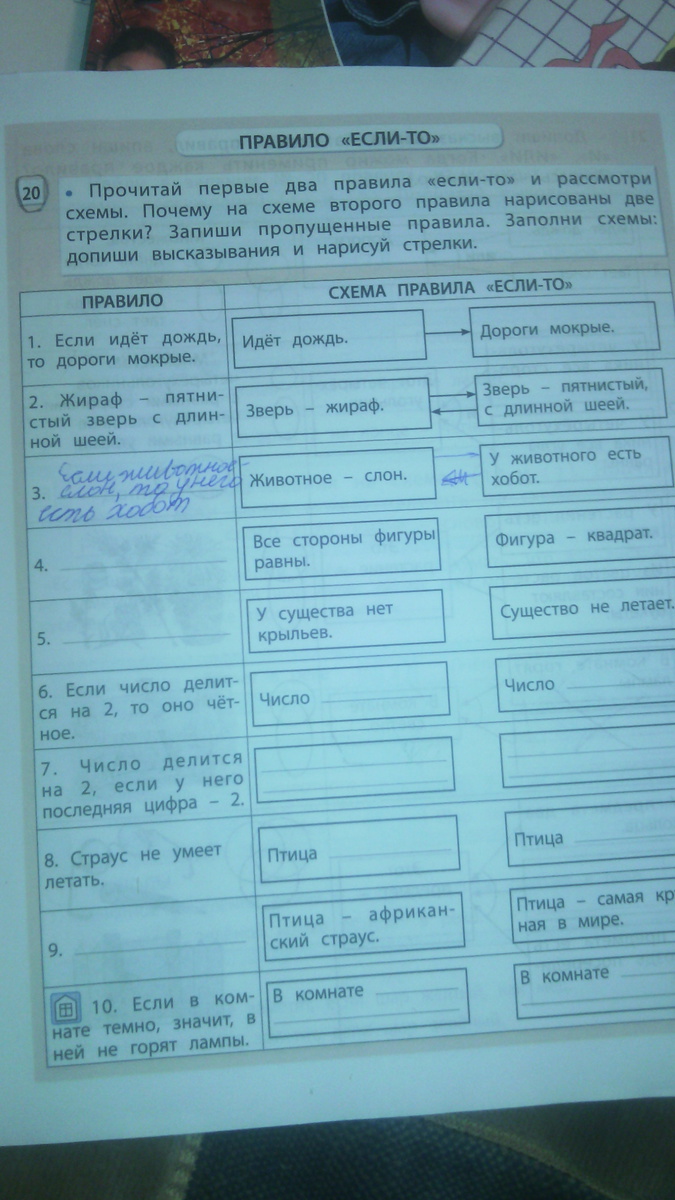 ПРАВИЛО «ЕСЛИ-ТО»
20
• Прочитай первые два правила «если-то» и рассмотри
схемы. Почему на схеме второго правила нарисованы две
стрелки? Запиши пропущенные правила. Заполни схемы:
допиши высказывания и нарисуй стрелки.
ПРАВИЛО
СХЕМА ПРАВИЛА «ЕСЛИ-ТО»
1. Если идёт дождь,
то дороги мокрые.
Идёт дождь.
Дороги мокрые.
2. Жираф – пятни-
стый зверь с длин-
ной шеей.
Зверь – жираф.
Зверь – пятнистый,
с длинной шеей.
3. Если животное-
слон, то у него
есть хобот
Животное – слон.
У животного есть
хобот.
4.
Все стороны фигуры
равны.
Фигура – квадрат.
5.
У существа нет
крыльев.
Существо не летает.
6. Если число делит-
ся на 2, то оно чёт-
ное.
Число
Число
7. Число делится
на 2, если у него
последняя цифра – 2.
8. Страус не умеет
летать.
Птица
Птица
9.
Птица – африкан-
ский страус.
Птица – самая кру
ная в мире.
10. Если в ком-
нате темно, значит, в
ней не горят лампы.
В комнате
В комнате